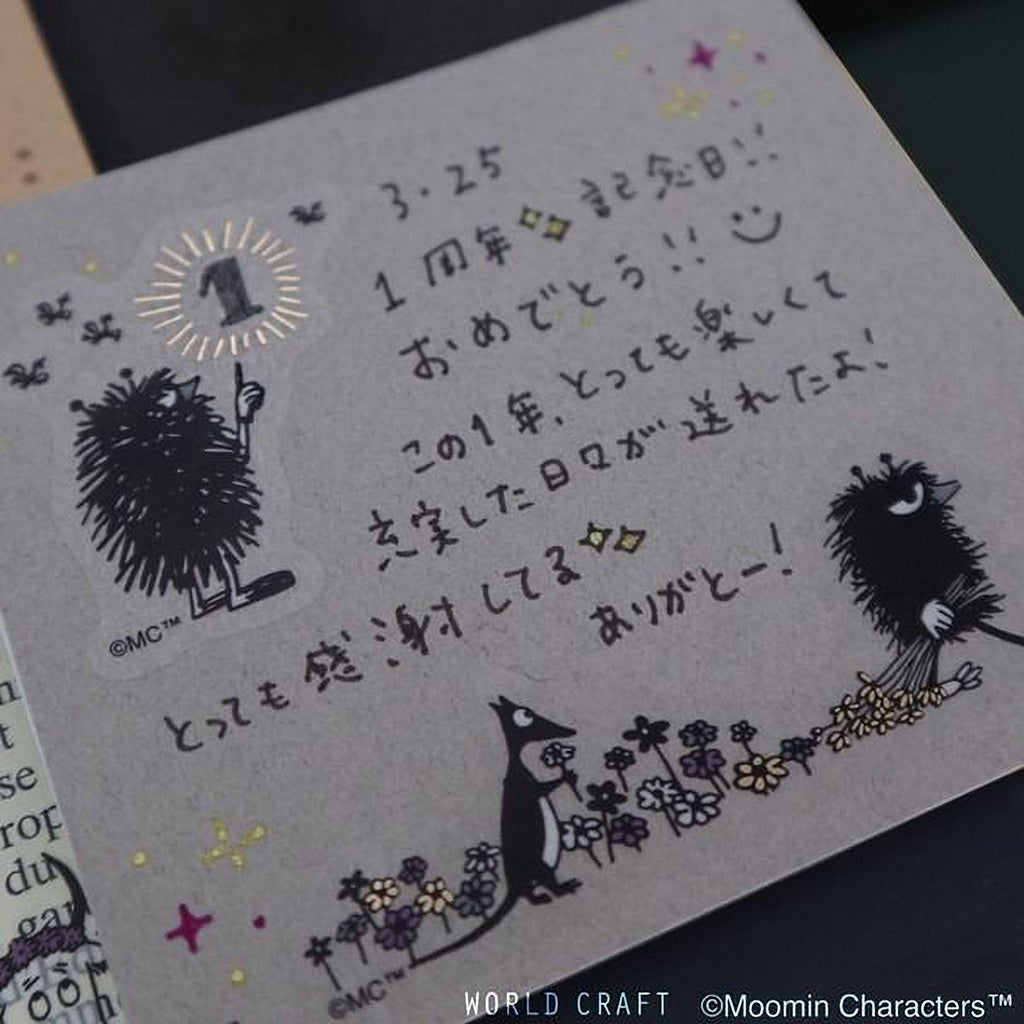 3.25
1周年 記念日!!
おめでとう!!
この1年、とっても楽しくて
充実した日々が送れたよ!
とっても感謝してる
ありがとー!
1
©MC™
©MC™
t
se
rop
du
WORLD CRAFT ©Moomin Characters™